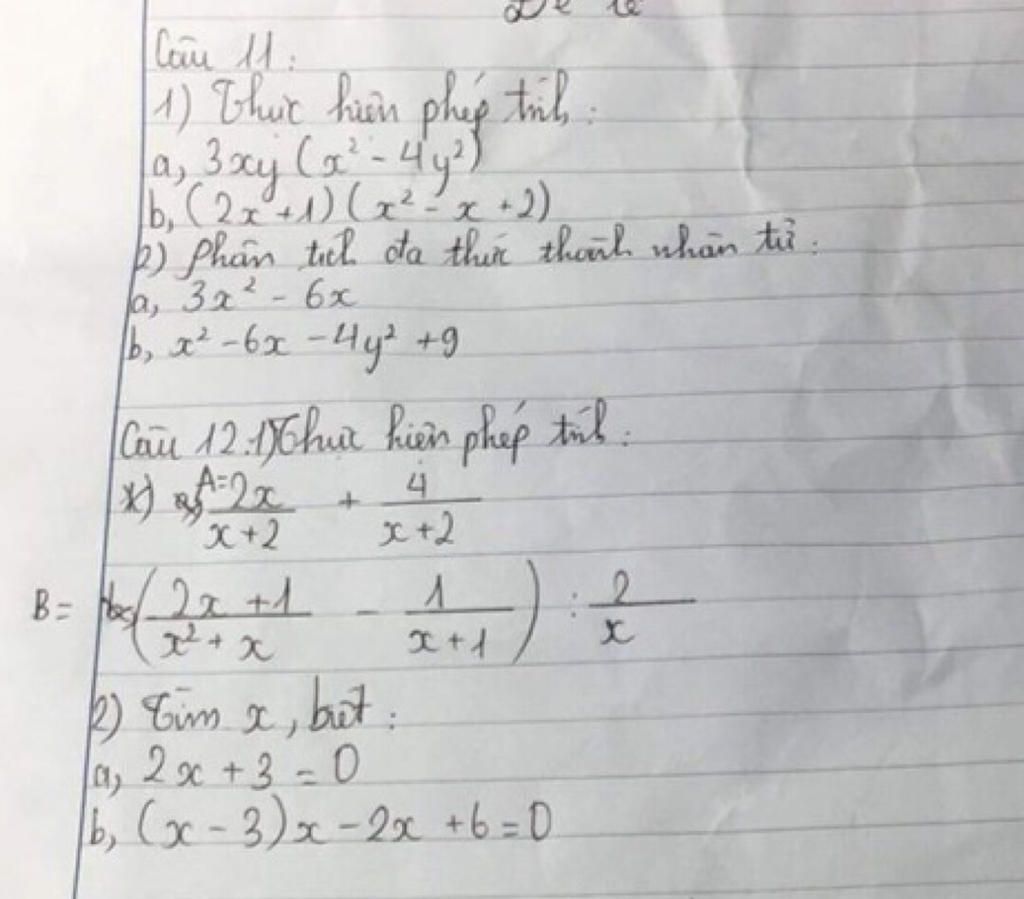 Câu 11:
1) Thực hiện phép tính:
a, 3xy (x² - 4y²)
b, (2x + 1) (x² - x + 2)
2) Phân tích đa thức thành nhân tử:
a, 3x² - 6x
b, x² - 6x - 4y² + 9
Câu 12. 1) Thực hiện phép tính:
*) A = 2x/(x+2) + 4/(x+2)
B = ((2x+1)/(x²+x) - 1/(x+1)) : 2/x
2) Tìm x, biết:
a, 2x + 3 = 0
b, (x - 3)x - 2x + 6 = 0